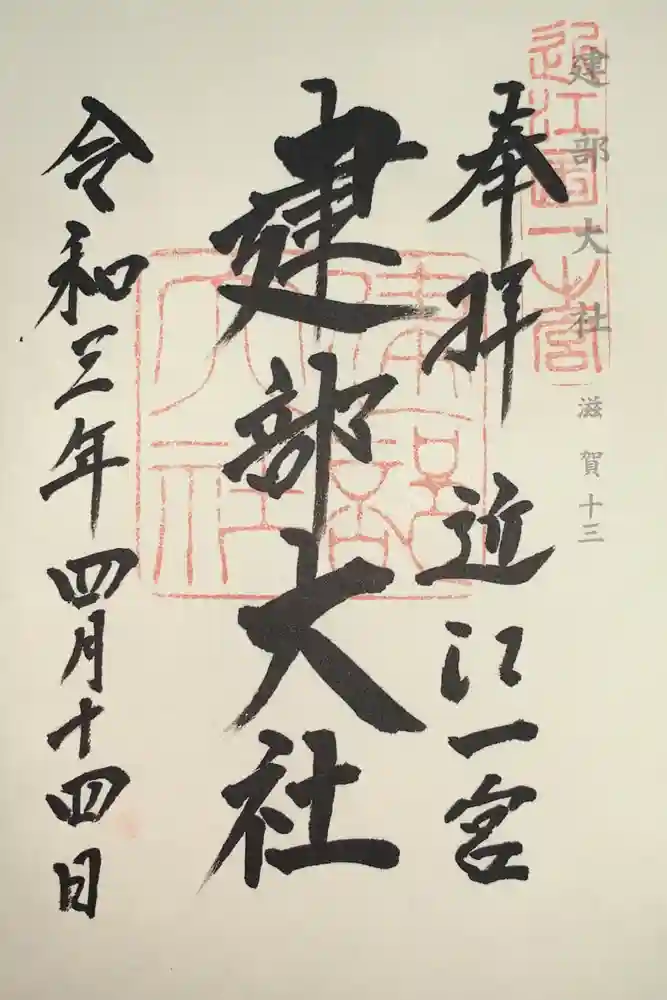 建部大社 滋賀十三
近江國一之宮
奉拝 近江一宮
建部大社
建部大社
令和三年四月十四日